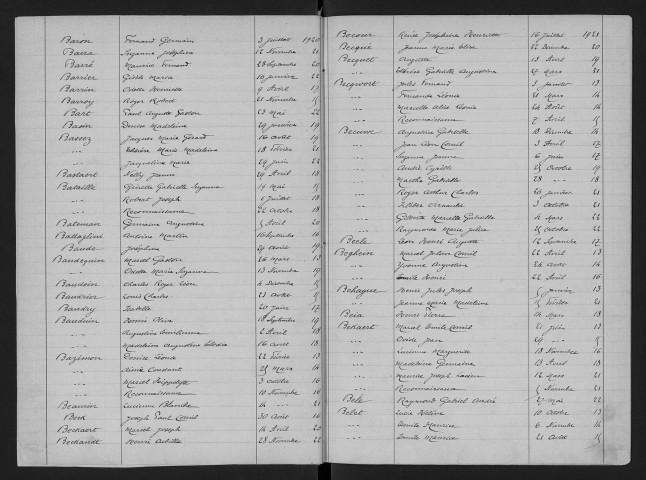 Baron Fernand Germain 3 juillet 1920
Barra Suzanne Joséphine 12 Novembre 21
Barré Maurice Fernand 28 Septembre 20
Barrier Gisèle Maria 10 janvier 22
Barrin Odette Henriette 9 Avril 17
Barroy Roger Robert 21 Novembre 15
Bart Paul Auguste Gaston 23 Mai 22
Basin Denise Madeleine 29 janvier 19
Bassez Jacques Marie Gérard 16 Août 19
-"- Marie Madeleine 18 Février 21
-"- Jacqueline Marie 29 juin 22
Bastaert Nelly Jeanne 29 Avril 18
Bataille Ginette Gabrielle Suzanne 14 Mai 15
-"- Robert Joseph 6 juillet 18
-"- Reconnaissance 22 Octobre 18
Bateman Germaine Augustine 5 Avril 20
Battaglini Antoine Martin 10 Septembre 16
Baude Joséphine 29 Août 19
Baudequin Marcel Gaston 26 Mars 13
-"- Odette Marie Suzanne 13 Novembre 19
Baudoin Charles Roger Léon 4 Décembre 15
Baudrier Louis Charles 23 Août 15
Baudry Isabelle 20 juin 17
Bauduin 18 Septembre 19
-"- Augustine 2 Avril 18
-"- Madeleine Augustine 16 Août 18
Bazimon Denise Léonie 22 Février 13
-"- Aimée Constant 25 Mars 14
-"- Marcel Hippolyte 3 Octobre 16
-"- Reconnaissance 10 Novembre 16
Beaurin Lucienne Blanche -"- 21
Beck Joseph Paul Camil 30 Août 16
Beckaert Marcel Joseph 14 Avril 20
Beckandt Henri Achille 28 Novembre 22
Becour Renée Joséphine Henriette 16 juillet 1921
Becqué Jeanne Marie 22 Décembre 20
Becquet Auguste 13 Avril 19
-"- Gabrielle Augustine 4 Mars 21
Becqwort Jules Fernand 3 janvier 13
-"- Fernande Léonie 21 Mars 14
-"- Marcelle Alice Léonie 24 Août 14
-"- Reconnaissance 7 Avril 15
Becuwe Augustine Gabrielle 18 Décembre 14
-"- Jean Léon Camil 3 Avril 17
-"- Suzanne Jeanne 6 juin 17
-"- André Cyrille 25 Octobre 19
-"- Marthe Gabrielle 28 -"- 18
-"- Roger Arthur Charles 20 janvier 21
-"- Fernande 3 Octobre 21
-"- Marcelle Gabrielle 14 Mars 22
-"- Raymonde Marie Julia 25 Octobre 22
Beele Léon Henri Auguste 12 Septembre 17
Beghein Marcel Julien Camil 22 Avril 13
-"- Yvonne Augustine 24 Août 14
-"- Emile Henri 22 Avril 16
Behague Henri Jules Joseph 5 janvier 13
-"- Jeanne Marie Madeleine 5 Février 21
Beia Henri Pierre 14 Mars 18
Bekaert Marcel Emile Camil 21 juin 13
-"- Ovide Jean 29 -"- 15
-"- Lucienne Marguerite 18 Novembre 16
-"- Madeleine Germaine 13 Avril 18
-"- Maurice Joseph Lucien 12 Mars 21
-"- Reconnaissance 5 Novembre 21
Bele Raymond Gabriel Amédée 27 Mai 22
Belet Lucie Hélène 10 Octobre 13
-"- Camille Maurice 6 Novembre 14
-"- Emile Maurice 21 Août 15